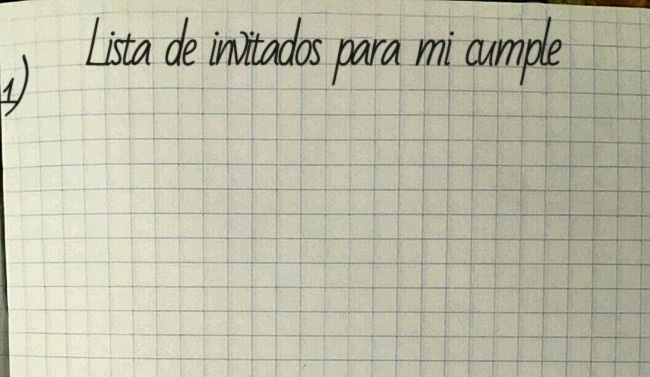 Lista de invitados para mi cumple
1)